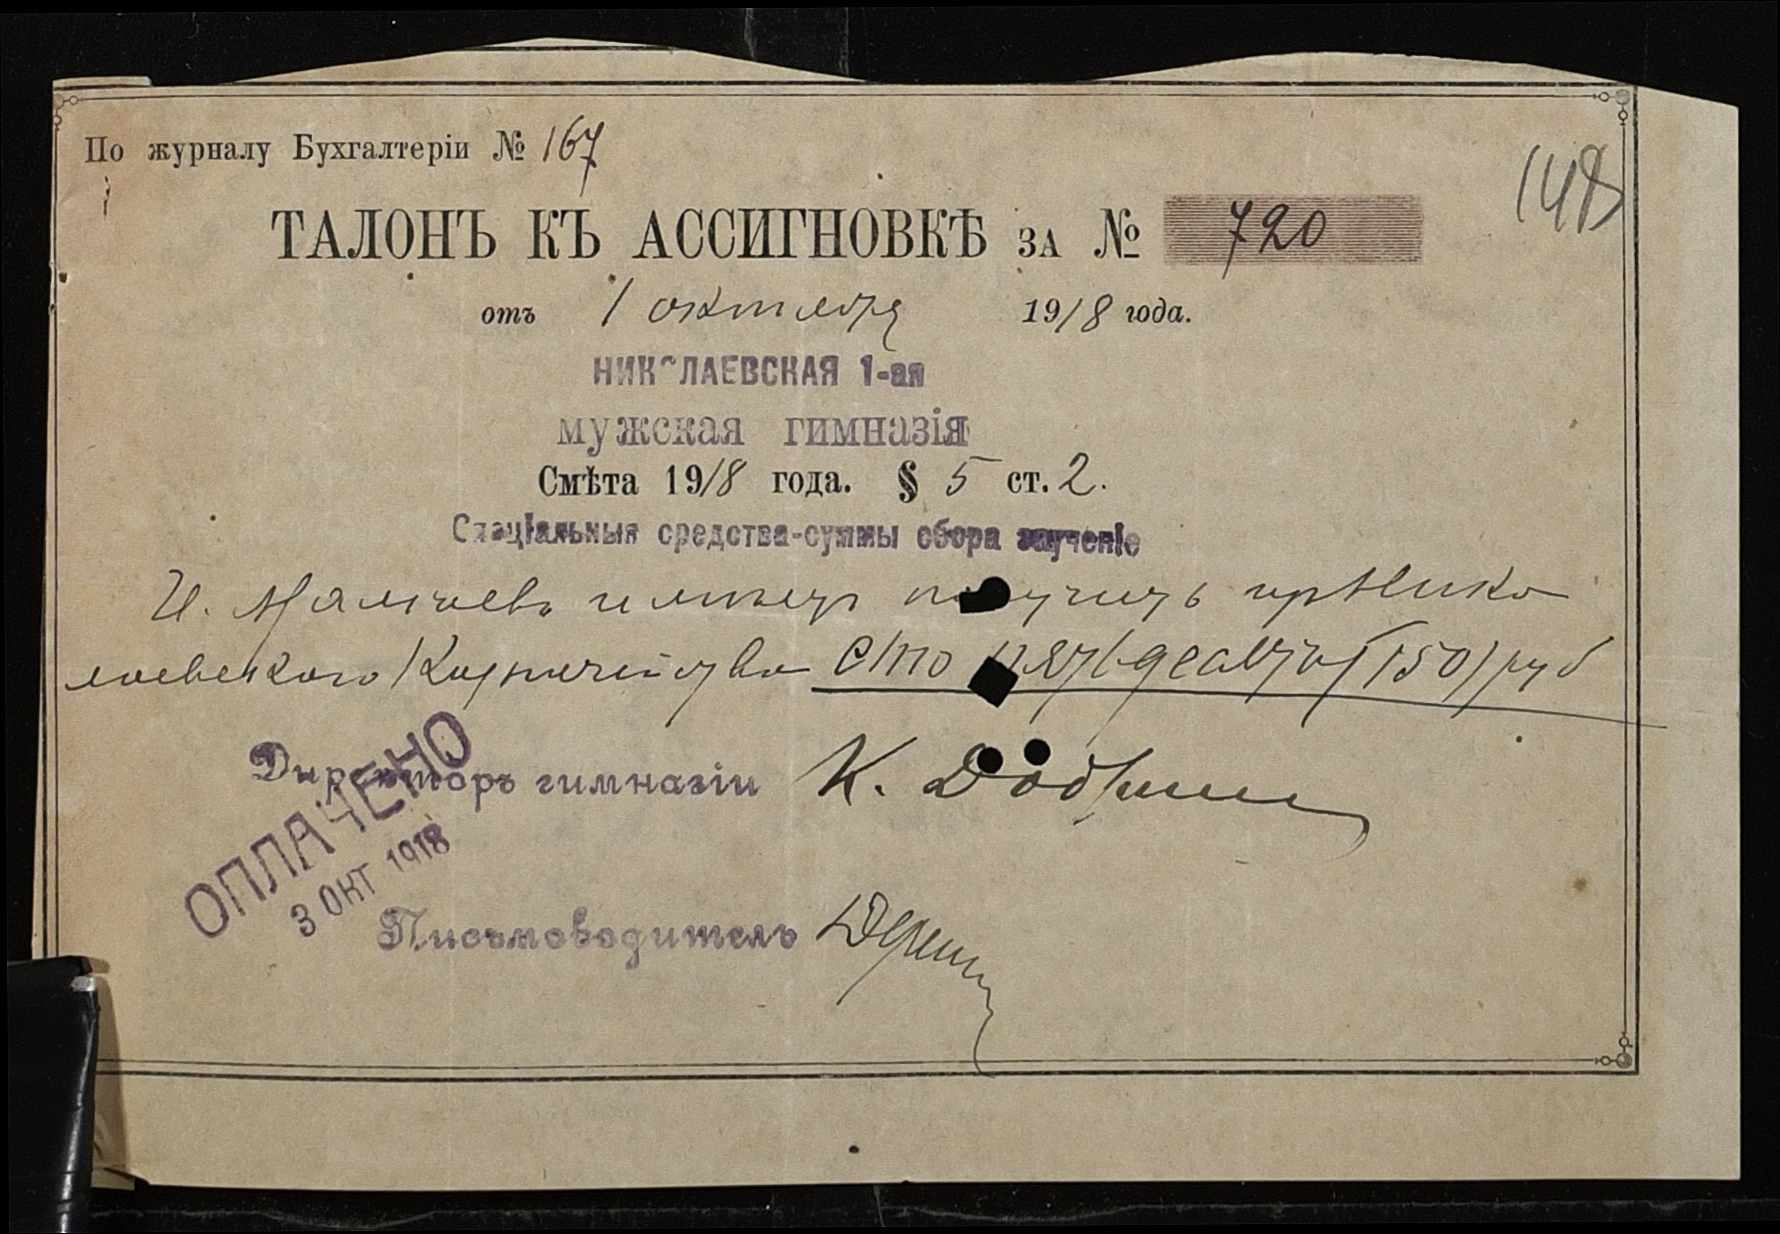 По журналу Бухгалтеріи № 167
148
ТАЛОНЪ КЪ АССИГНОВКѢ ЗА № 720
отъ 1 октября 1918 года.
НИКОЛАЕВСКАЯ 1-ая
мужская гимназія
Смѣта 1918 года. § 5 ст. 2.
Спеціальныя средства-суммы сбора заученіе
И. имѣетъ получить изъ Нико
лаевского Казначейства сто пятьдесятъ (150) руб
Директоръ гимназіи К.
ОПЛАЧЕНО
3 ОКТ 1918
Письмоводитель